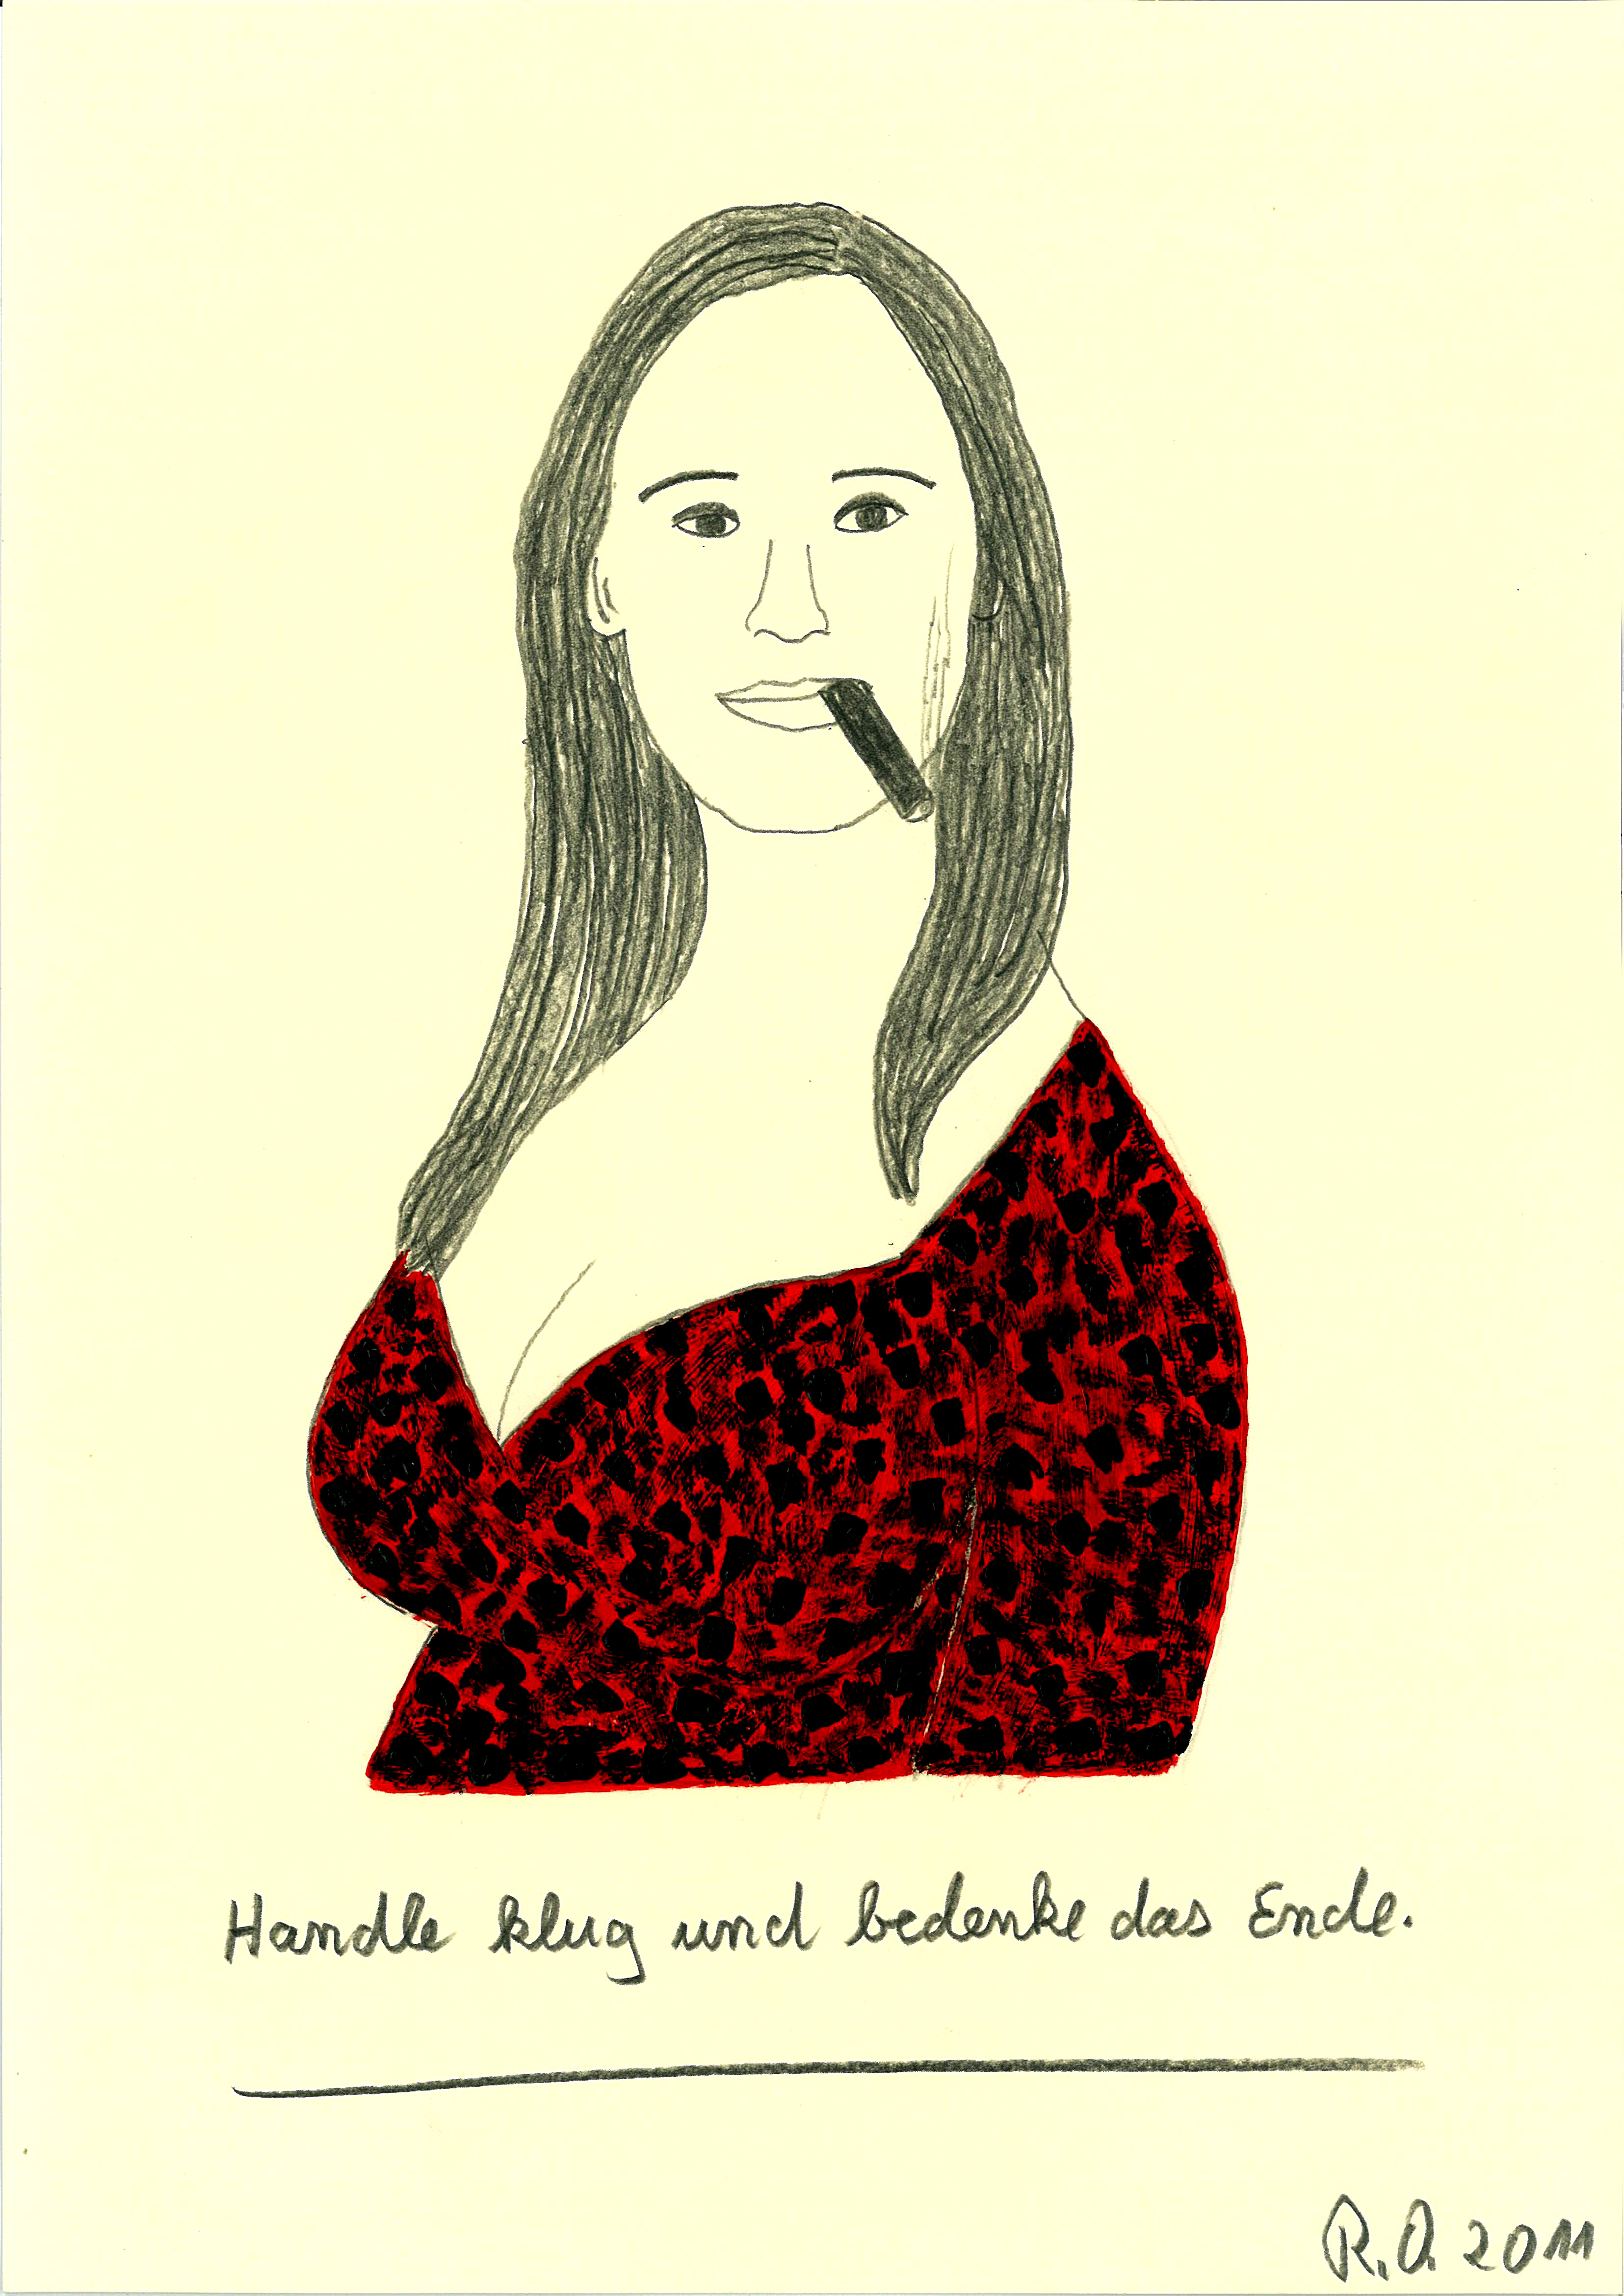 Handle klug und bedenke das Ende.
R.O. 2011